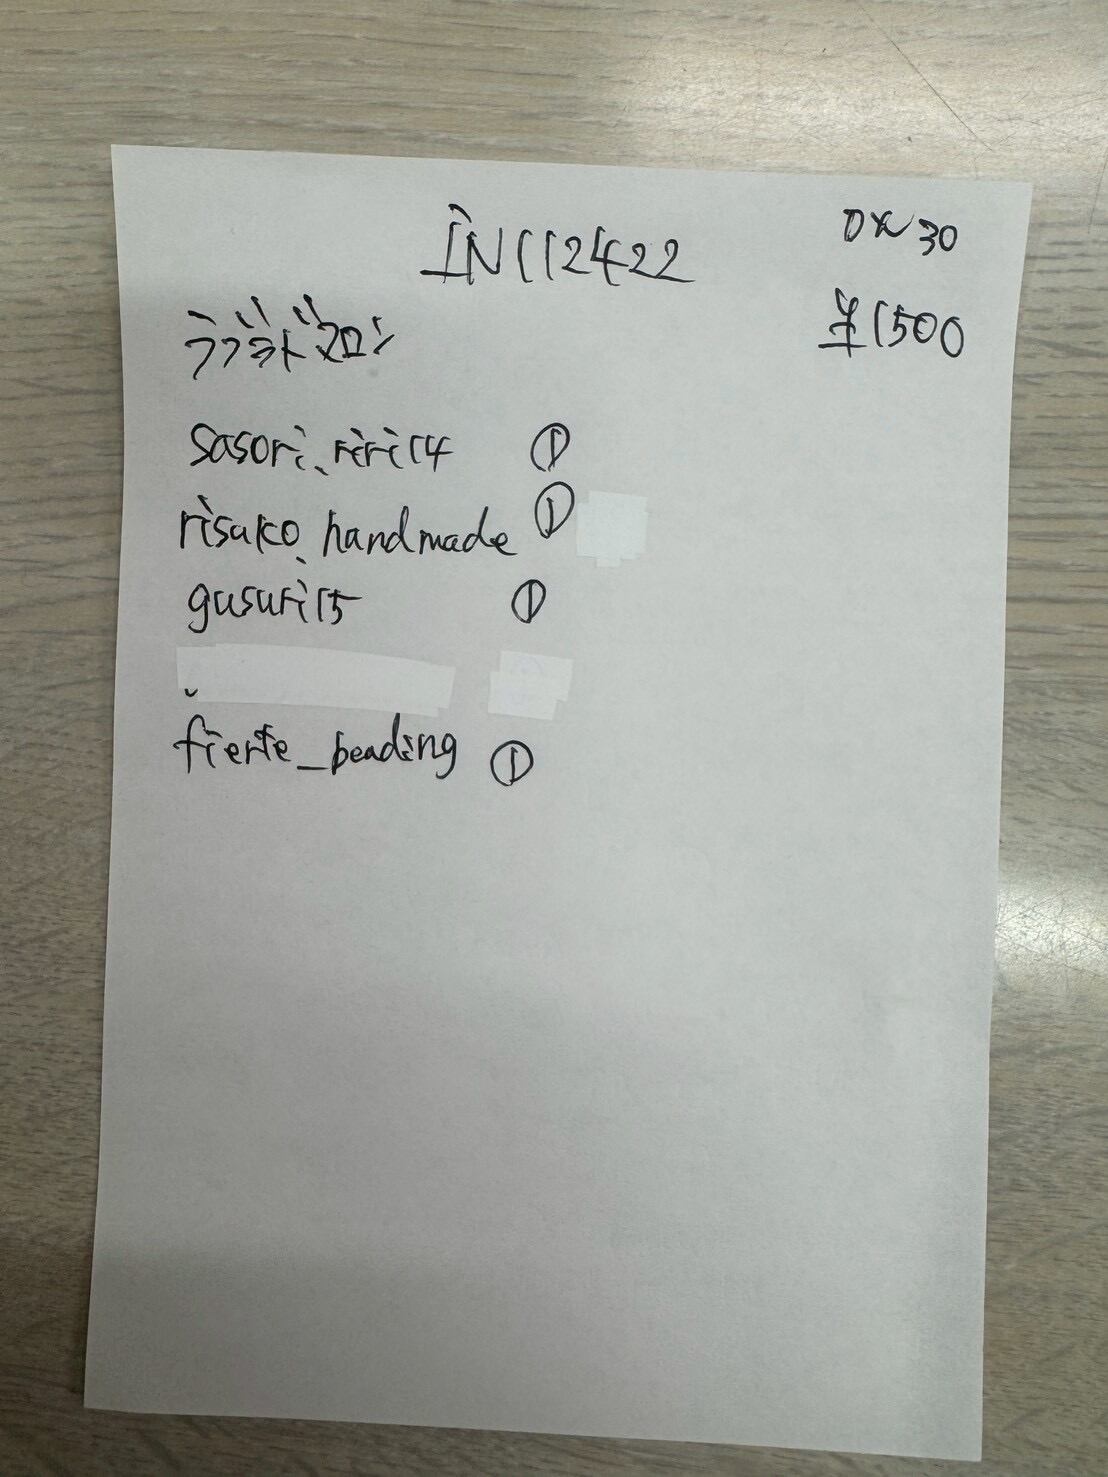 IN112422
0x30
¥1500
sasori_riri14 ①
risako_handmade ①
gusuri15 ①
fierte_beading ①